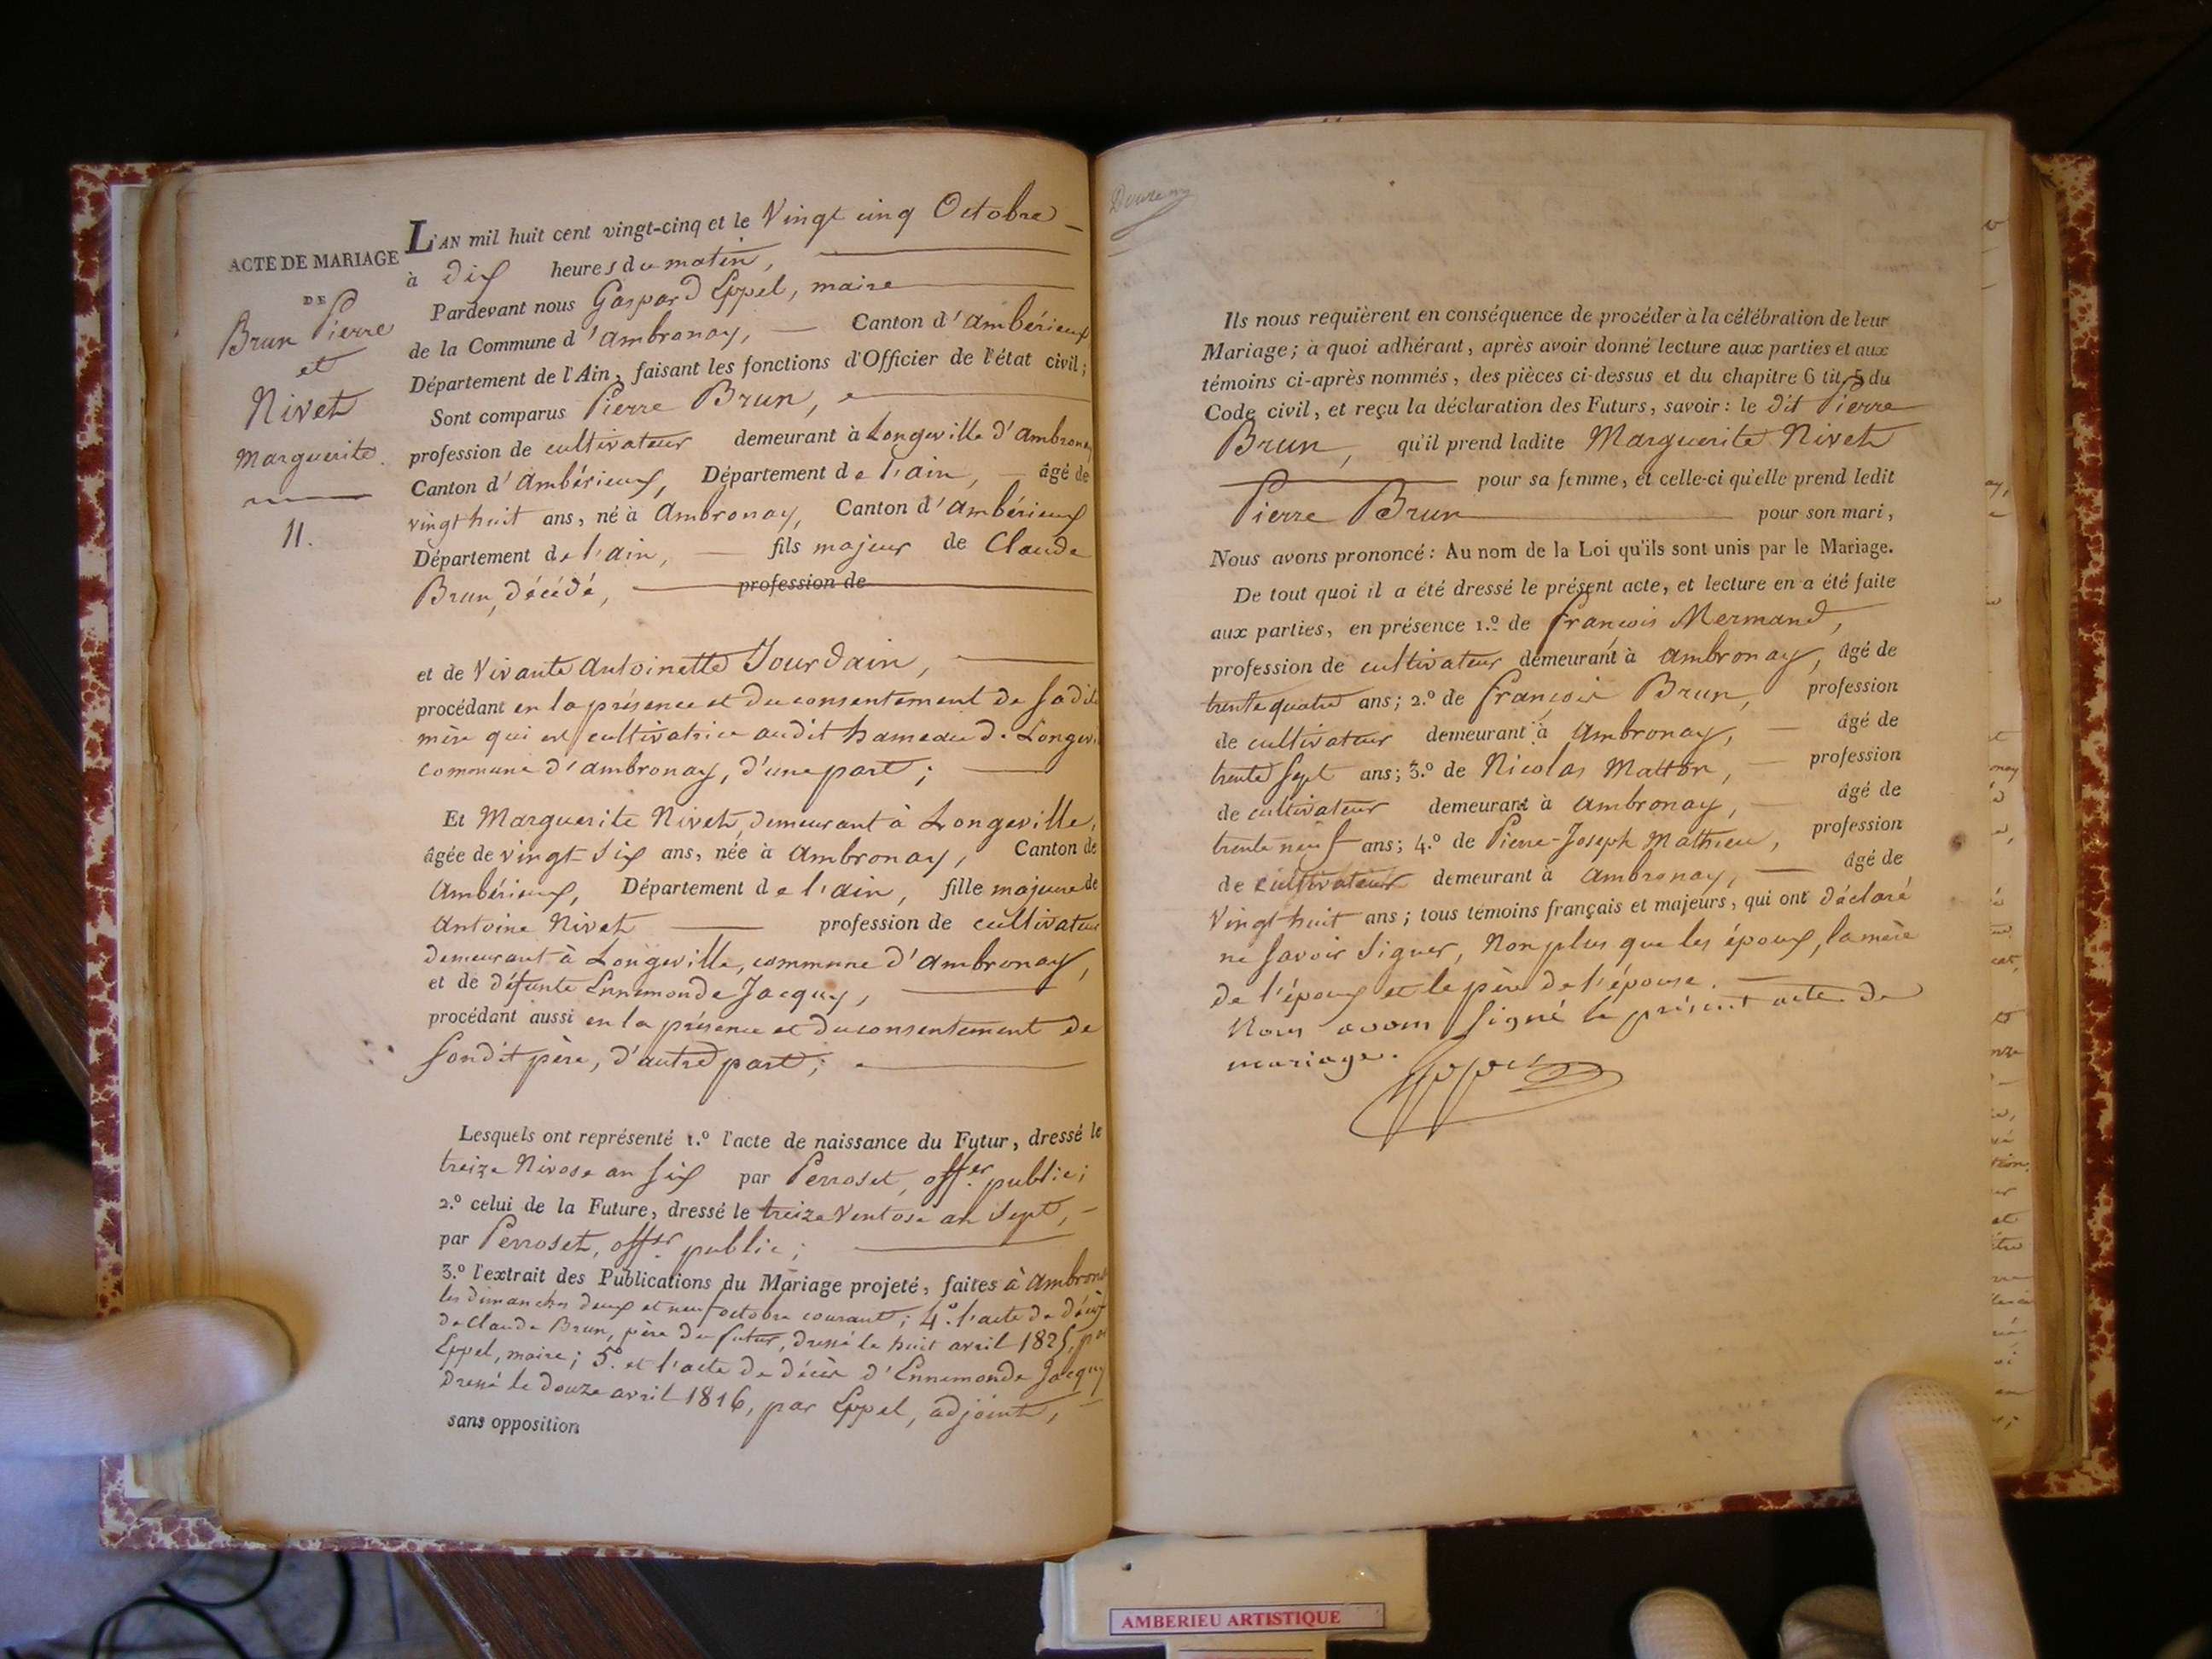 ACTE DE MARIAGE
DE
Brun Pierre
et
Nivet
Marguerite.
11.
L'AN mil huit cent vingt-cinq et le Vingt cinq Octobre
à dix heures du matin,
Pardevant nous Gaspard Eppel, maire
de la Commune d'Ambronay, Canton d'Ambérieux
Département de l'Ain, faisant les fonctions d'Officier de l'état civil;
Sont comparus Pierre Brun,
profession de cultivateur demeurant à Longeville d'Ambronay
Canton d'Ambérieux, Département de l'ain, âgé de
vingt huit ans, né à Ambronay, Canton d'Ambérieux
Département de l'ain, fils majeur de Claude
Brun, décédé, profession de
et de Vivante Antoinette Jourdain,
procédant en la présence et du consentement de sadite
mère qui est cultivatrice audit hameau de Longev.
commune d'ambronay, d'une part;
Et Marguerite Nivet, demeurant à Longeville,
âgée de vingt-six ans, née à Ambronay, Canton de
Ambérieux, Département de l'ain, fille majeure de
Antoine Nivet profession de cultivateur
demeurant à Longeville, commune d'ambronay,
et de défunte Ennemonde Jacquy,
procédant aussi en la présence et du consentement de
sondit père, d'autre part;
Lesquels ont représenté 1.º l'acte de naissance du Futur, dressé le
treize Nivose an six par Perroset, off.er public;
2.º celui de la Future, dressé le treize Ventose an Sept,
par Perroset, off.er public;
3.º l'extrait des Publications du Mariage projeté, faites à Ambronay
les dimanches deux et neuf octobre courant; 4.º l'acte de décès
de Claude Brun, père du futur, dressé le huit avril 1825, par
Eppel, maire; 5.º et l'acte de décès d'Ennemonde Jacquy
dressé le douze avril 1816, par Eppel, adjoint,
sans opposition
Ils nous requièrent en conséquence de procéder à la célébration de leur
Mariage; à quoi adhérant, après avoir donné lecture aux parties et aux
témoins ci-après nommés, des pièces ci-dessus et du chapitre 6 tit. 5 du
Code civil, et reçu la déclaration des Futurs, savoir: le dit Pierre
Brun, qu'il prend ladite Marguerite Nivet
pour sa femme, et celle-ci qu'elle prend ledit
Pierre Brun pour son mari,
Nous avons prononcé: Au nom de la Loi qu'ils sont unis par le Mariage.
De tout quoi il a été dressé le présent acte, et lecture en a été faite
aux parties, en présence 1.º de françois Mermand,
profession de cultivateur demeurant à Ambronay, âgé de
trente quatre ans; 2.º de françois Brun, profession
de cultivateur demeurant à Ambronay, âgé de
trente sept ans; 3.º de Nicolas Matton, profession
de cultivateur demeurant à Ambronay, âgé de
trente neuf ans; 4.º de Pierre-Joseph Mathieu, profession
de cultivateur demeurant à Ambronay, âgé de
Vingt huit ans; tous témoins français et majeurs, qui ont déclaré
ne savoir signer, Non plus que les époux, la mère
de l'époux et le père de l'épouse.
Nous avons signé le présent acte de
mariage.
Eppel
AMBERIEU ARTISTIQUE